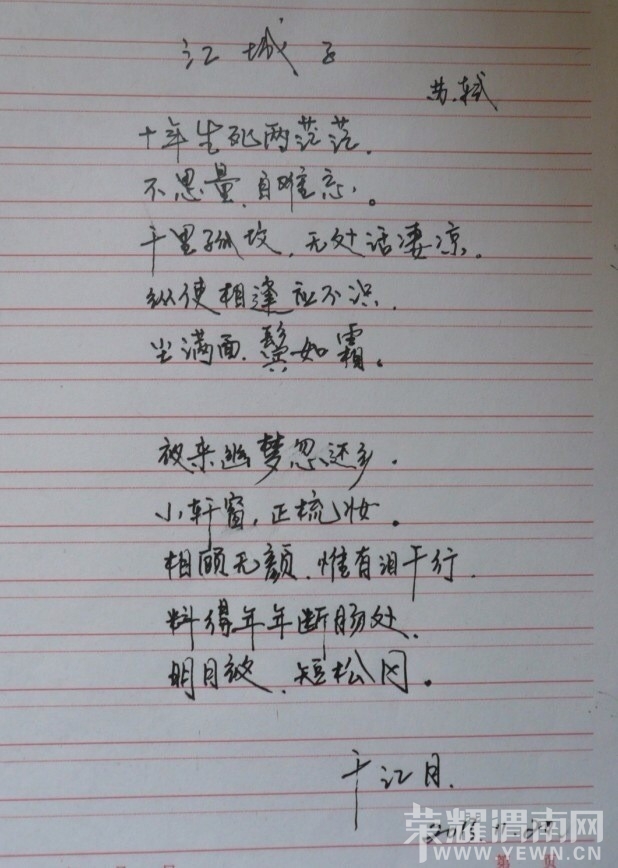 江城子
苏轼
十年生死两茫茫,
不思量,自难忘。
千里孤坟,无处话凄凉。
纵使相逢应不识,
尘满面,鬓如霜。
夜来幽梦忽还乡。
小轩窗,正梳妆。
相顾无颜,惟有泪千行。
料得年年断肠处,
明月夜,短松冈。
千江月.
荣耀渭南网
WWW.YEWN.CN